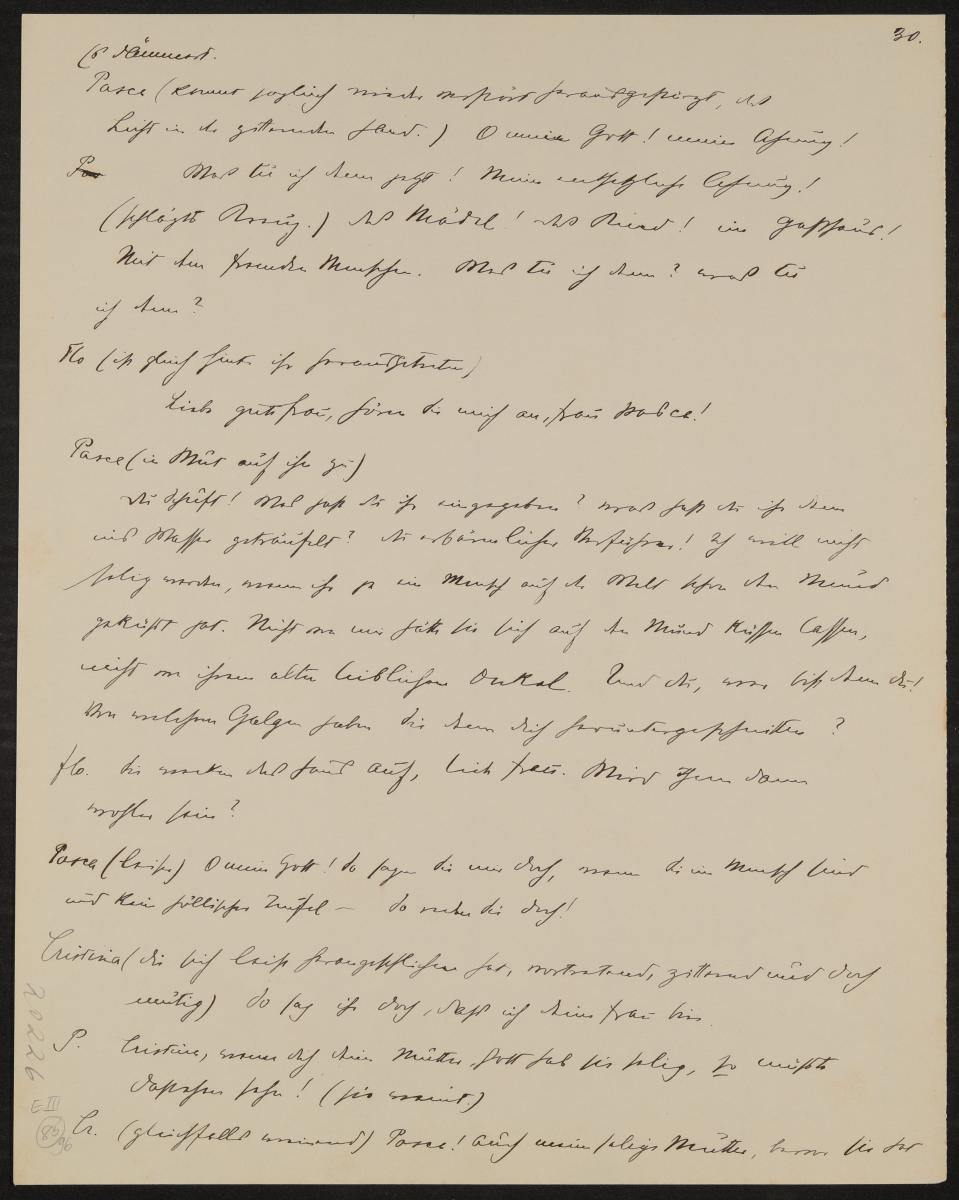 30.
(es dämmert.
Pasca (kommt sogleich wieder verstört herausgestürzt, das
Licht in der zitternden Hand.) O mein Gott! meine Ahnung!
Pas Was tu ich denn jetzt! Meine entsetzliche Ahnung!
(schlägt's Kreuz.) das Mädel! das Kind! im Gasthaus!
Mit dem fremden Menschen. Was tu ich denn? was tu
ich denn?
Flo (ist gleich hinter ihr herausgetreten)
Liebe gute Frau, hören Sie mich an, Frau Pasca!
Pasca (in Wut auf ihn zu)
du Schuft! Was hast du ihr eingegeben? was hast du ihr denn
ins Wasser geträufelt? du erbärmlicher Verführer! Ich will nicht
selig werden, wenn ihr je ein Mensch auf der Welt schon den Mund
geküsst hat. Nicht von mir hätte sie sich auf den Mund küssen lassen,
nicht von ihrem alten leiblichen Onkel. Und du, wer bist denn du!
Von welchem Galgen haben sie denn dich heruntergeschnitten?
Flo. Sie wecken das Haus auf, liebe Frau. Wird Ihnen dann
wohler sein?
Pasca (leise) O mein Gott! So sagen Sie mir doch, wenn Sie ein Mensch sind
und kein höllischer Teufel — So reden Sie doch!
Cristina (die sich leise herangeschlichen hat, vortretend, zitternd und doch
mutig) So sag ihr doch, dass ich deine Frau bin.
P. Cristina, wenn das deine Mutter, Gott hab sie selig, so müsste
dastehen sehn! (sie weint.)
Cr. (gleichfalls weinend) Pasca! Auch meine selige Mutter, bevor sie hat
20226
E III
85
96